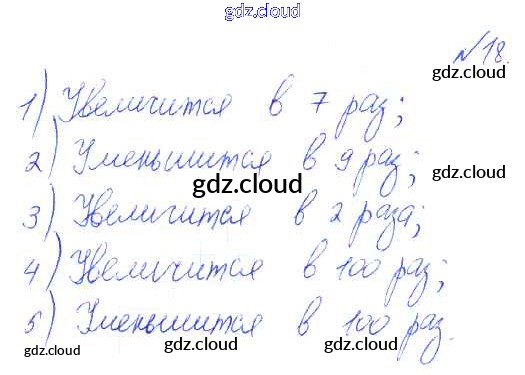 gdz.cloud
№18.
gdz.cloud
1) Увеличится в 7 раз;
gdz.cloud
2) Уменьшится в 9 раз;
gdz.cloud
gdz.cloud
3) Увеличится в 2 раза;
gdz.cloud
4) Увеличится в 100 раз;
5) Уменьшится в 100 раз.
gdz.cloud gdz.cloud gdz.cloud